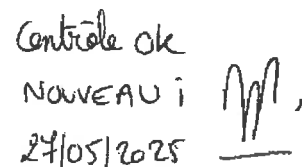 Contrôle ok
NOUVEAU i
27/05/2025